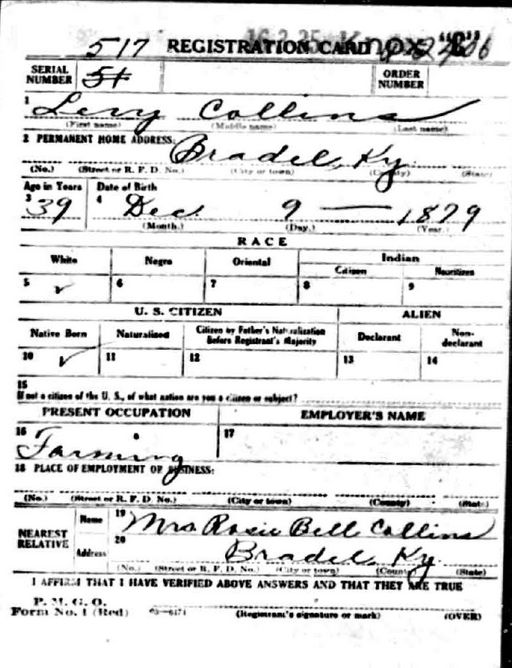 517 REGISTRATION CARD
SERIAL NUMBER 51 ORDER NUMBER
1 Levy Collins
(First name) (Middle name) (Last name)
2 PERMANENT HOME ADDRESS: Bradel, Ky
(No.) (Street or R. F. D. No.) (City or town) (County) (State)
Age in Years Date of Birth
3 39 4 Dec. 9 — 1879
(Month.) (Day.) (Year.)
RACE
White Negro Oriental Indian
Citizen Noncitizen
5 ✓ 6 7 8 9
U. S. CITIZEN ALIEN
Native Born Naturalized Citizen by Father's Naturalization Before Registrant's Majority Declarant Non-declarant
10 ✓ 11 12 13 14
15
If not a citizen of the U. S., of what nation are you a citizen or subject?
PRESENT OCCUPATION EMPLOYER'S NAME
16 Farming 17
18 PLACE OF EMPLOYMENT OF BUSINESS:
(No.) (Street or R. F. D. No.) (City or town) (County) (State)
NEAREST RELATIVE Name 19 Mrs Rosie Bell Collins
Address 20 Bradel, Ky
(No.) (Street or R. F. D. No.) (City or town) (County) (State)
I AFFIRM THAT I HAVE VERIFIED ABOVE ANSWERS AND THAT THEY ARE TRUE
P. M. G. O.
Form No. 1 (Red) (Registrant's signature or mark) (OVER)